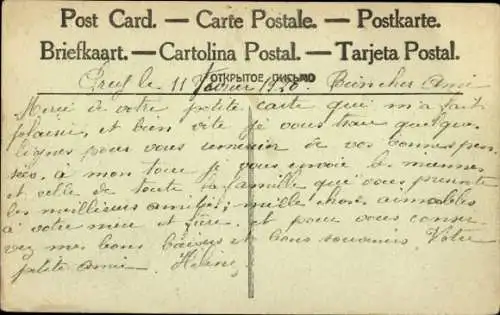 Post Card. — Carte Postale. — Postkarte.
Briefkaart. — Cartolina Postal. — Tarjeta Postal.
ОТКРЫТОЕ ПИСЬМО
le 11 Février Bien cher Ami
Merci de votre petite carte qui m'a fait
plaisir, et bien vite je vous trace quelque
lignes pour vous remercier de vos bonnes pen
sées, à mon tour je vous envoie les miennes
et celle de toute la famille qui vous présente
les meilleurs amitiés, mille choses aimables
à votre mère et et pour vous conser
vez mes bons baisers et bons souvenirs. Votre
petite amie. Hélène